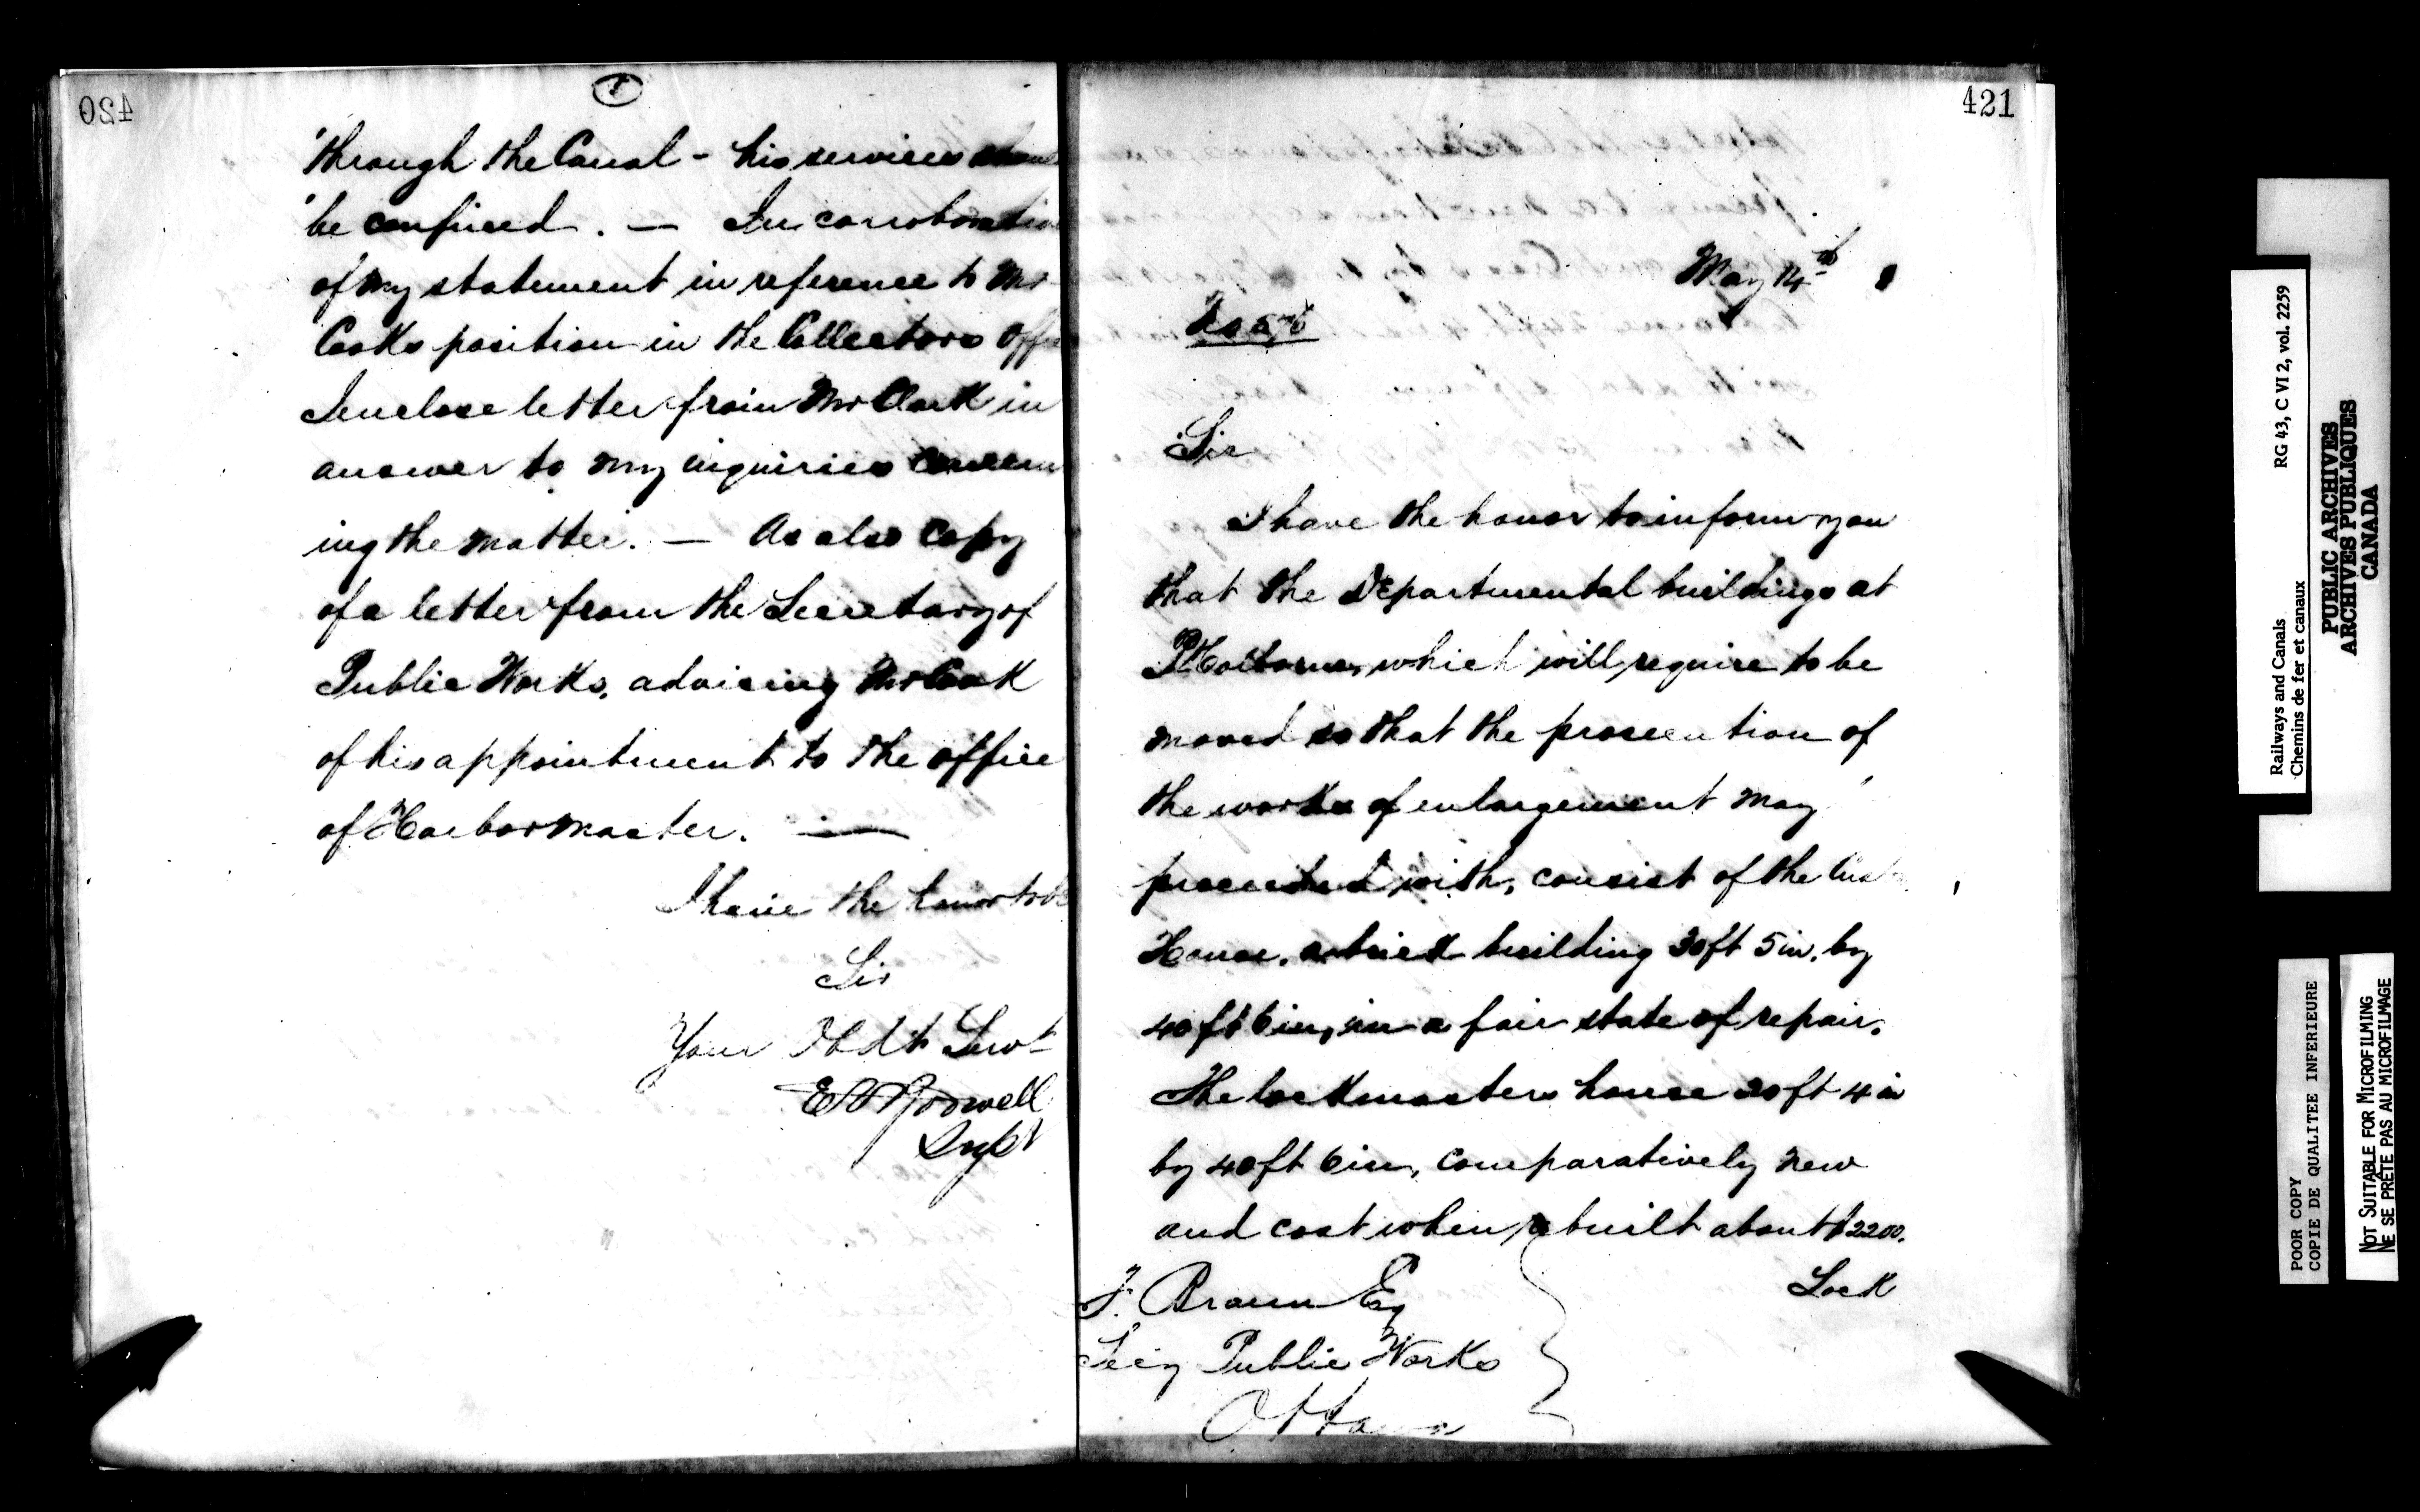 420
'through the Canal - his services
'be confined. — In corroboration
of my statement in reference to Mr
Cooks position in the Collectors Office
I enclose letter from Mr Clark in
answer to my inquiries concern
ing the matter. — As also Copy
of a letter from the Secretary of
Public Works, advising Mr Cook
of his appointment to the office
of Harbor Master. —
I have the honor to be
Sir
Your Obdt Servt
Supt
421
May 14th
Sir
I have the honor to inform you
that the Departmental buildings at
Pt Colborne, which will require to be
moved so that the prosecution of
the works of enlargement may
proceeded with, consist of the
House, a brick building 30ft 5in. by
40ft 6in, in a fair state of repair.
The lockmasters house 20ft 4in
by 40ft 6in, comparatively new
and cost when built about $2200.
Lock
F. Braun Esq
Secy Public Works
Ottawa
Railways and Canals RG 43, C VI 2, vol. 2259
Chemins de fer et canaux
PUBLIC ARCHIVES
ARCHIVES PUBLIQUES
CANADA
POOR COPY
COPIE DE QUALITEE INFERIEURE
NOT SUITABLE FOR MICROFILMING
NE SE PRÊTE PAS AU MICROFILMAGE